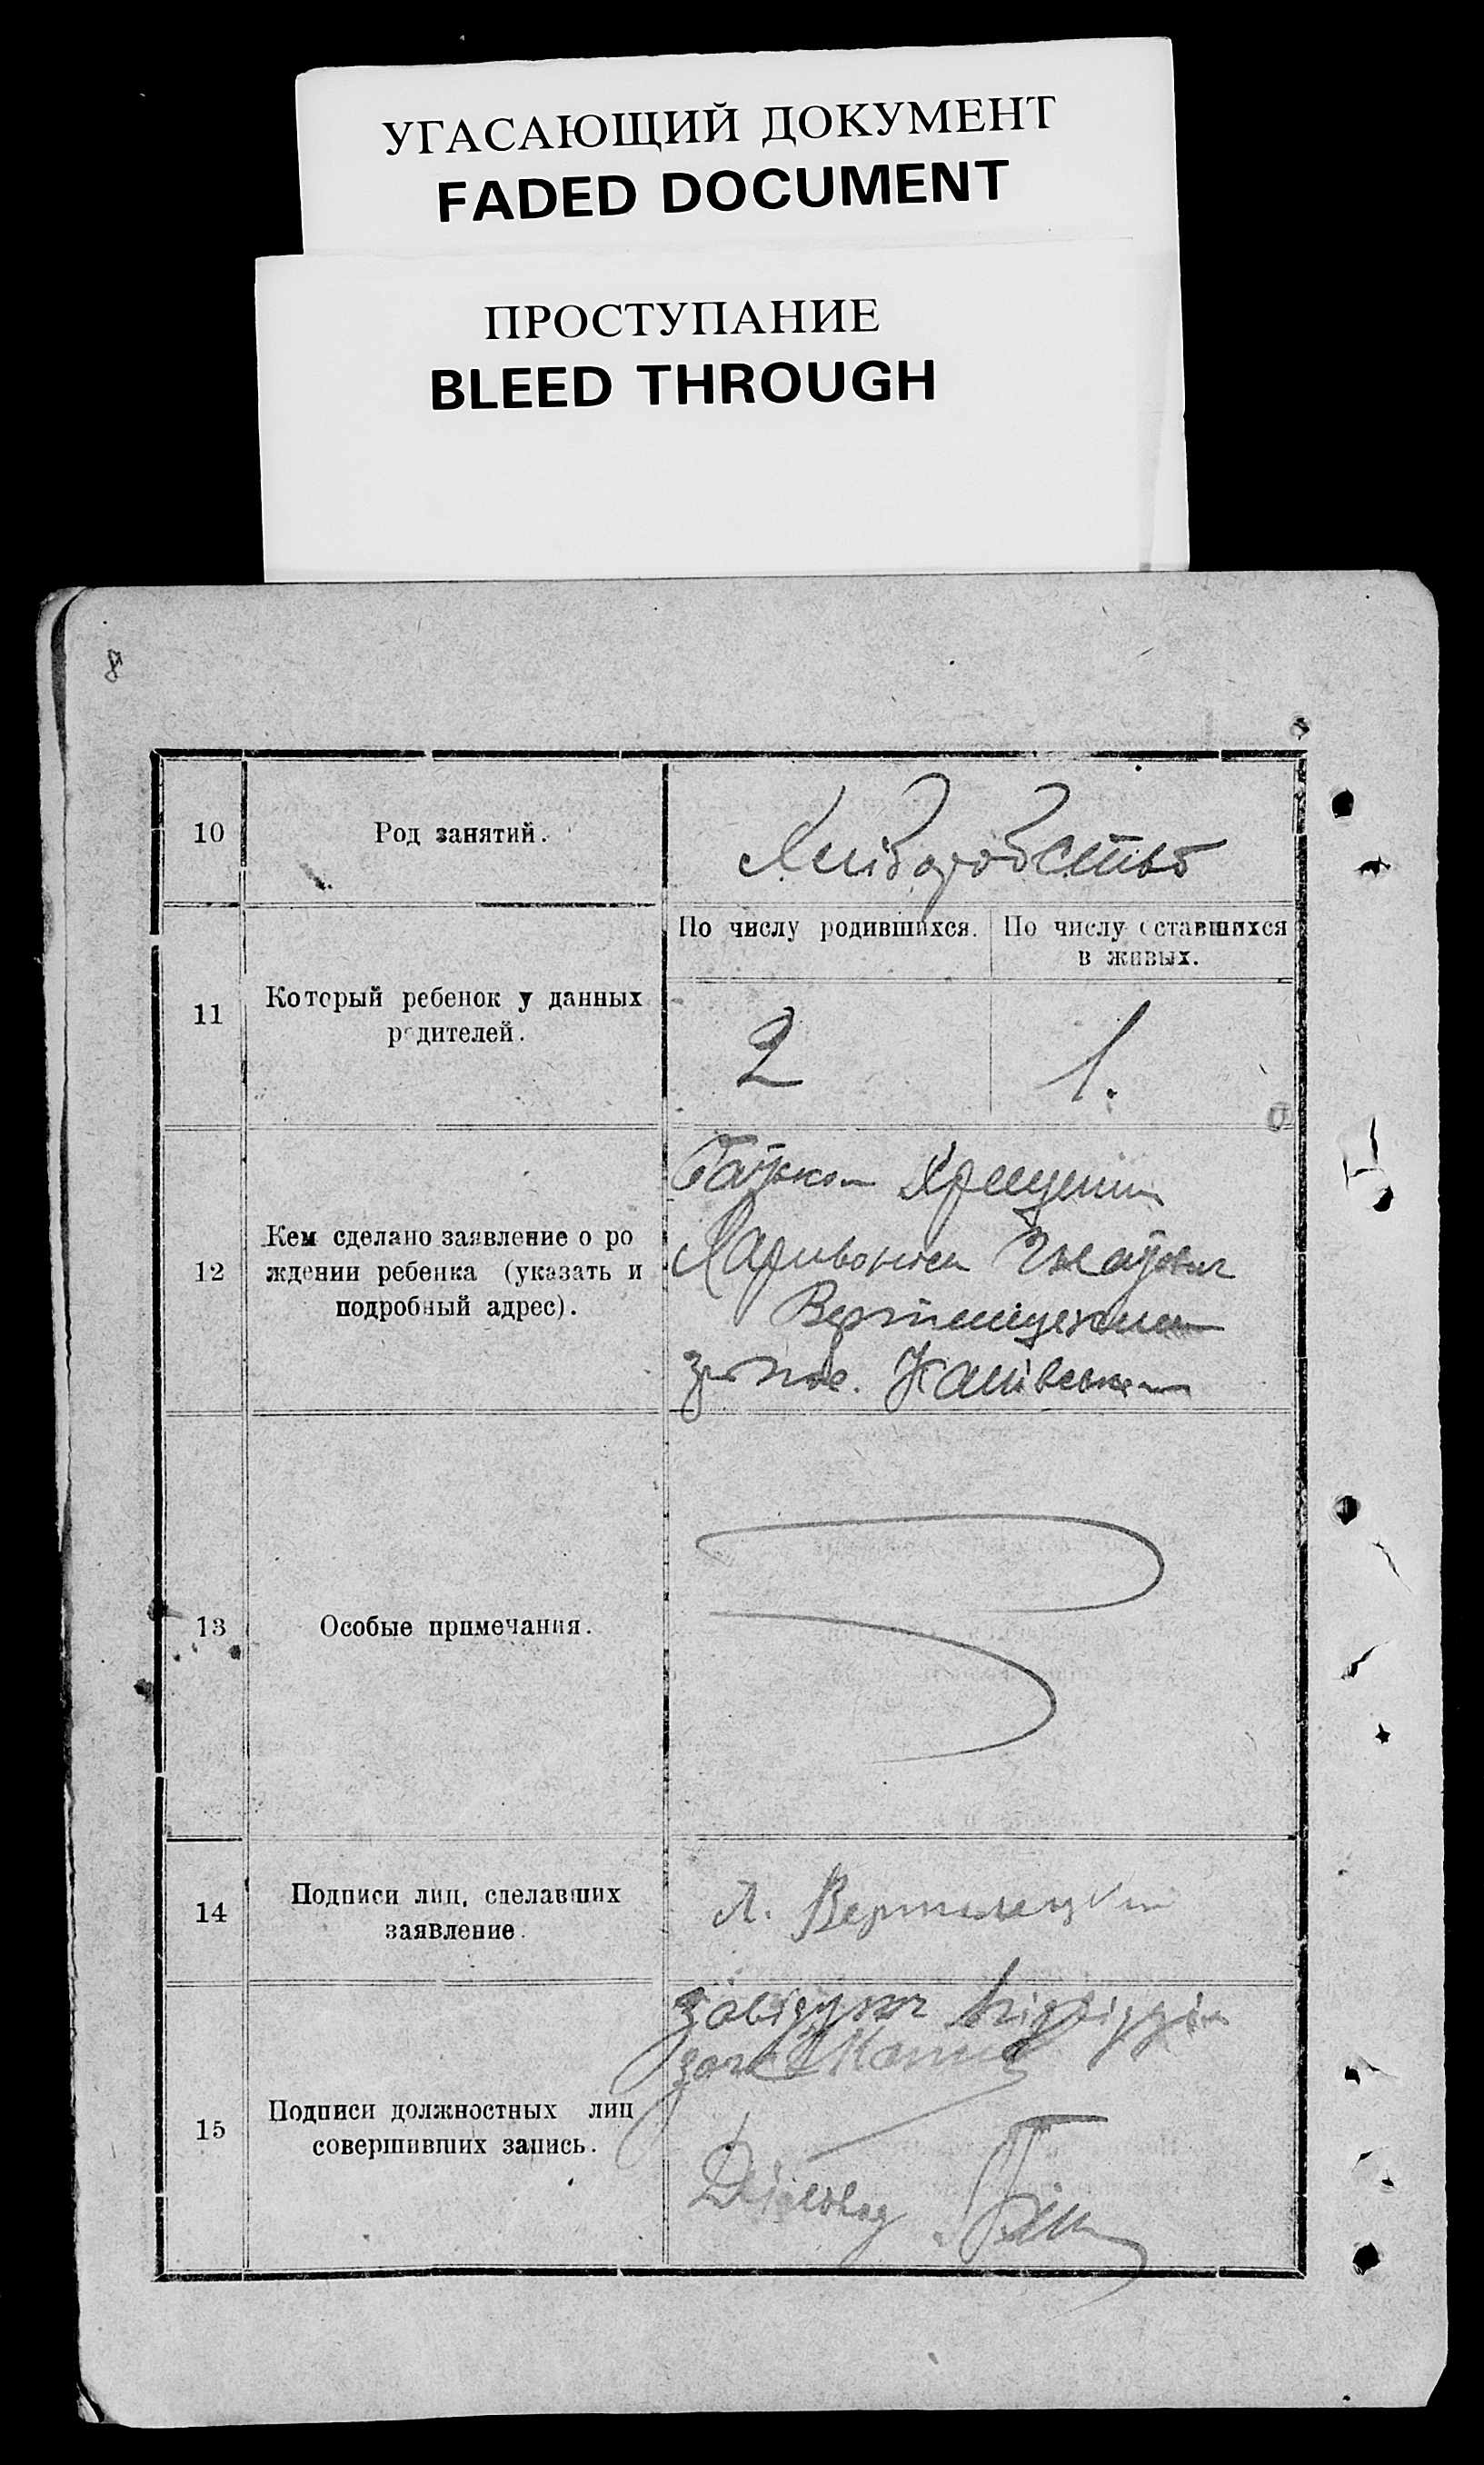 УГАСАЮЩИЙ ДОКУМЕНТ
FADED DOCUMENT
ПРОСТУПАНИЕ
BLEED THROUGH
8
10
Род занятий.
Хліборобство
11
Который ребенок у данных
родителей.
По числу родившихся.
По числу оставшихся
в живых.
2
1.
12
Кем сделано заявление о ро
ждении ребенка (указать и
подробный адрес).
Батьком
Вертилецким
13
Особые примечания.
14
Подписи лиц, сделавших
заявление.
Л. Вертилецкий
15
Подписи должностных лиц
совершивших запись.
Діловод